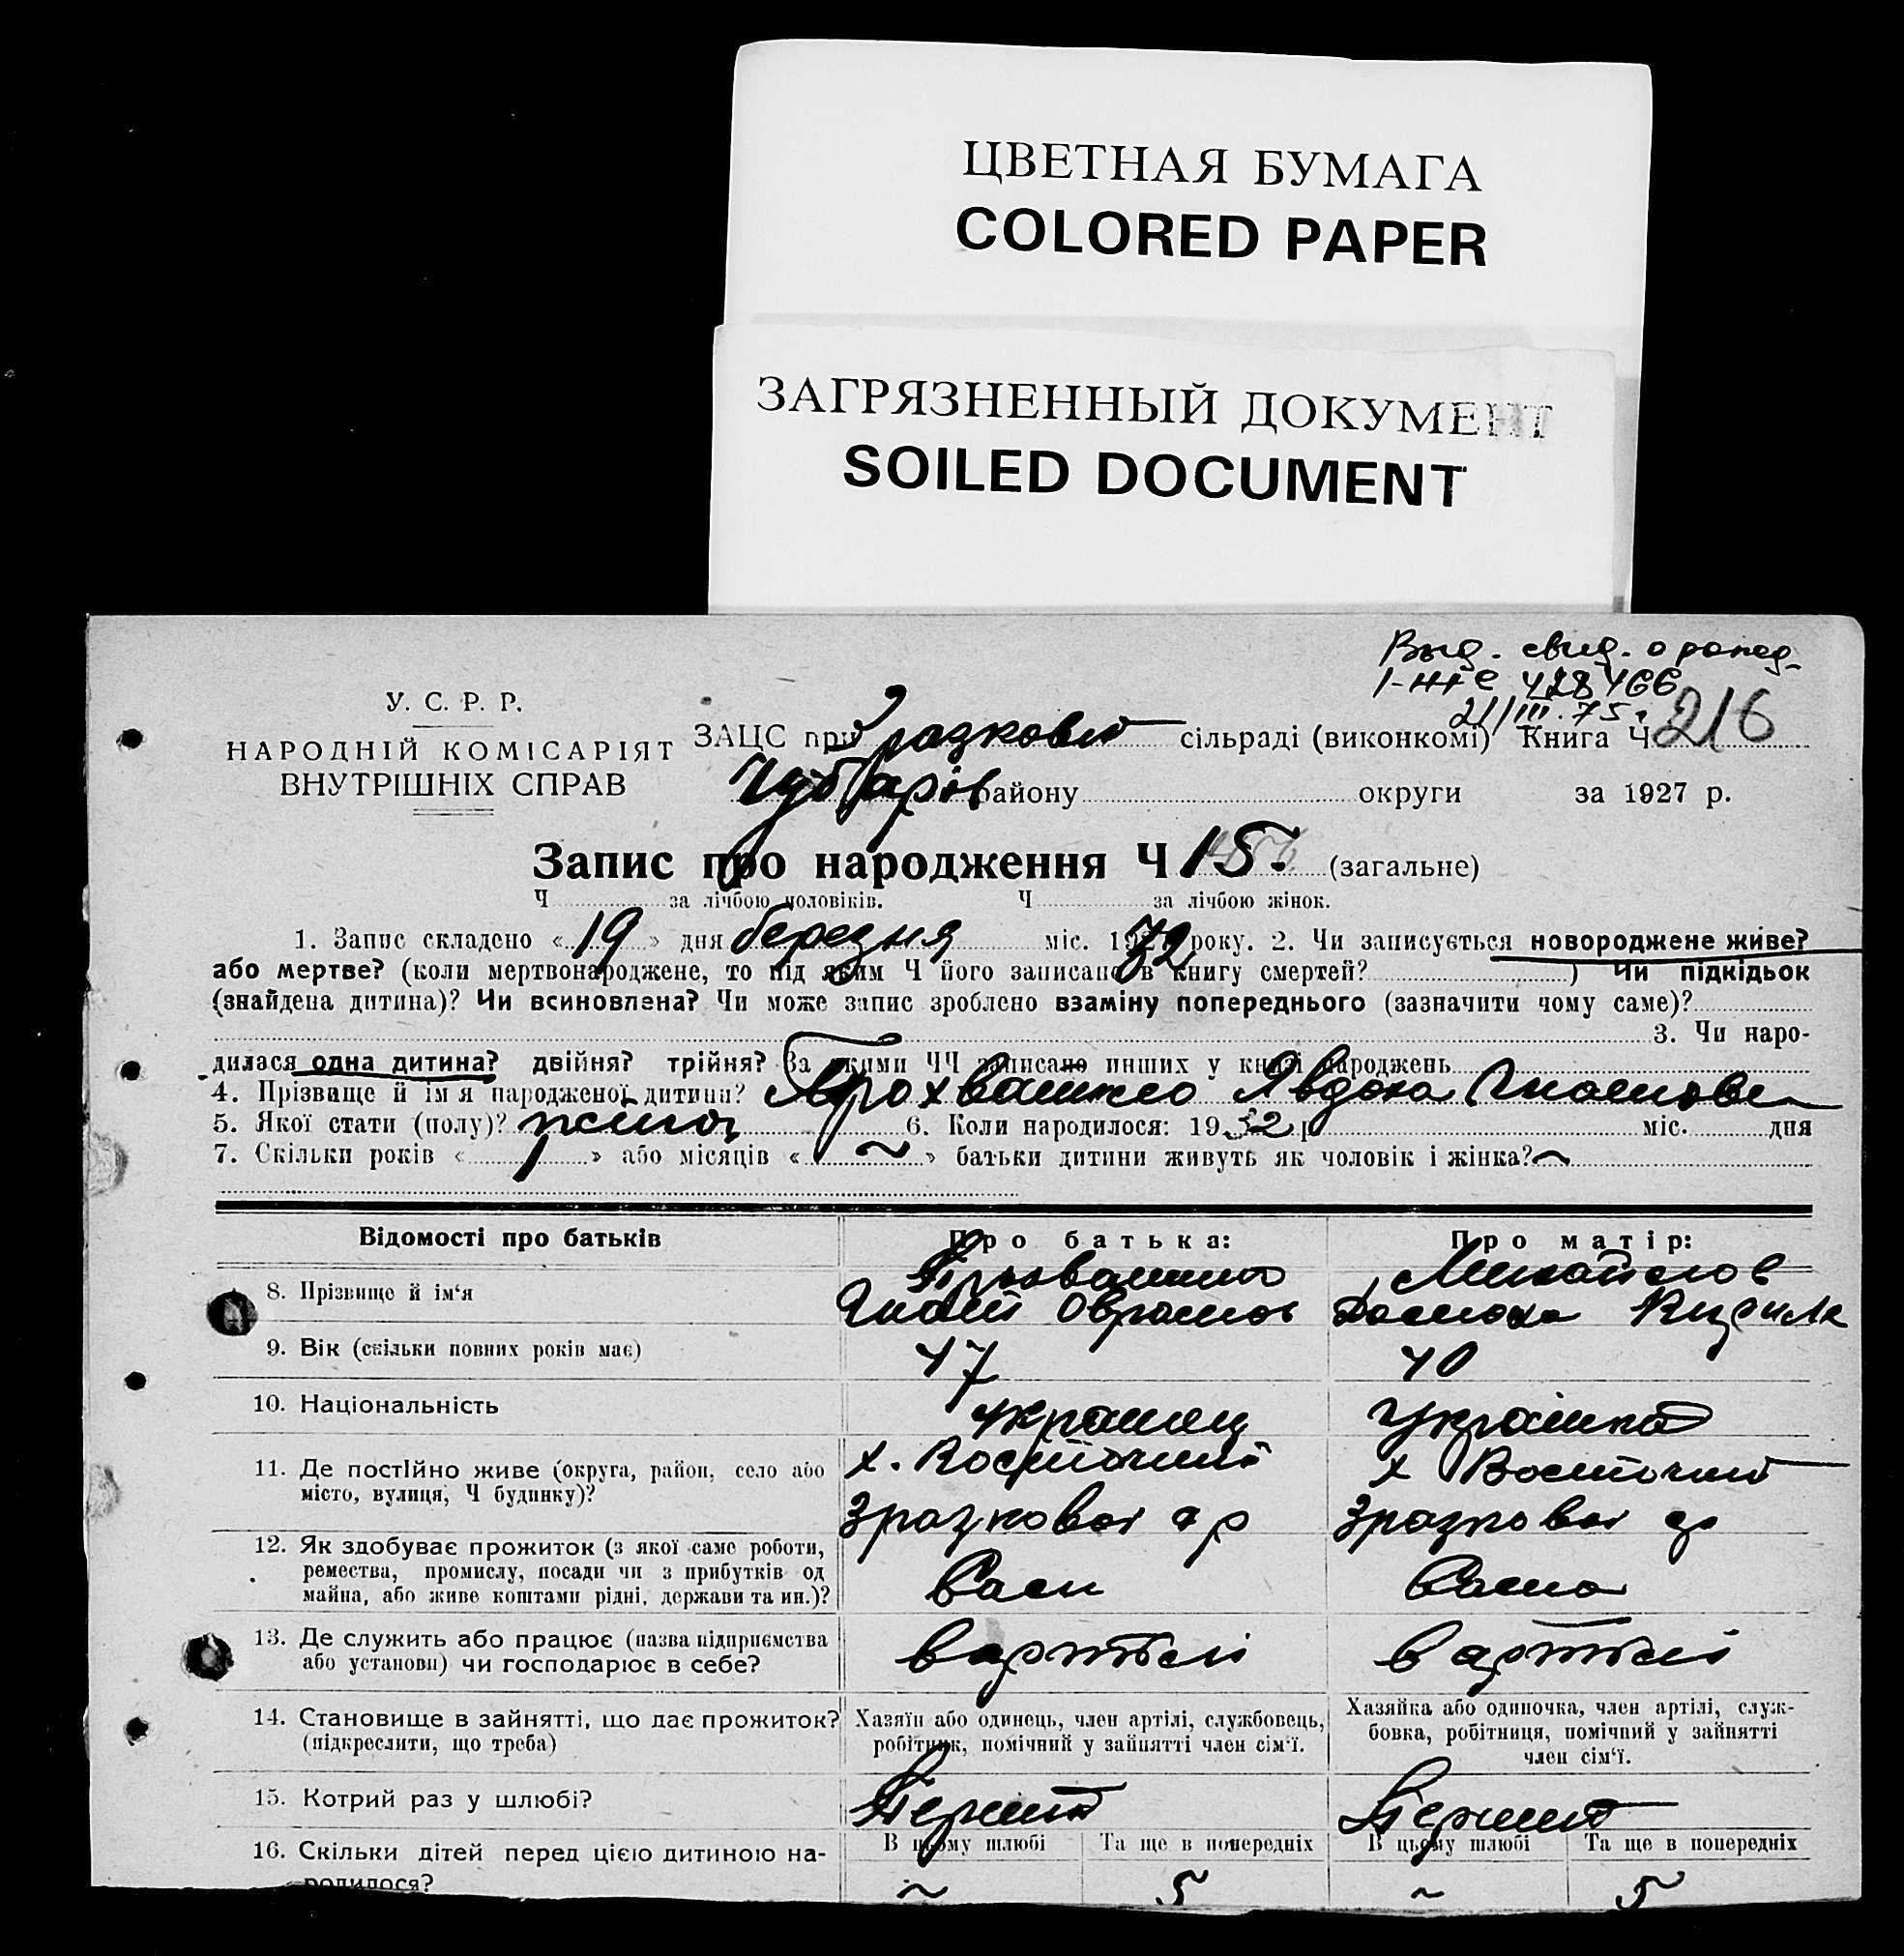 ЦВЕТНАЯ БУМАГА
COLORED PAPER
ЗАГРЯЗНЕННЫЙ ДОКУМЕНТ
SOILED DOCUMENT
Выд. свид. о рожд.
428466
21/III.75 г.
У. С. Р. Р.
НАРОДНІЙ КОМІСАРІЯТ
ВНУТРІШНІХ СПРАВ
ЗАЦС при Зразковій сільраді (виконкомі) Книга Ч 216
Чубарів району округи за 1927 р.
Запис про народження Ч 15. (загальне)
Ч за лічбою чоловіків. Ч за лічбою жінок.
1. Запис складено « 19 » дня березня міс. 1932 року. 2. Чи записується новороджене живе?
або мертве? (коли мертвонароджене, то під яким Ч його записано в книгу смертей? ) Чи підкідьок
(знайдена дитина)? Чи всиновлена? Чи може запис зроблено взаміну попереднього (зазначити чому саме)?
3. Чи наро-
дилася одна дитина? двійня? трійня? За якими ЧЧ записано инших у книзі народжень
4. Прізвище й ім'я народженої дитини? Явдоха
5. Якої статі (полу)? жіноч 6. Коли народилося: 1932 р міс. дня
7. Скільки років « 1 » або місяців « ~ » батьки дитини живуть як чоловік і жінка? ~
Відомості про батьків Про батька: Про матір:
8. Прізвище й ім'я Михайлов
9. Вік (скільки повних років має) 47 40
10. Національність українец українка
11. Де постІйно живе (округа, район, село або місто, вулиця, Ч будинку)?
х. Восточний х Восточний
Зразкової с р Зразкової ср
12. Як здобуває прожиток (з якої саме роботи,
ремества, промислу, посади чи з прибутків од
майна, або живе коштами рідні, держави та ин.)?
13. Де служить або працює (назва підприємства
або установи) чи господарює в себе? вартілі вартілі
14. Становище в зайнятті, що дає прожиток?
(підкреслити, що треба)
Хазяїн або одинець, член артілі, службовець,
робітник, помічний у зайнятті член сім'ї.
Хазяйка або одиночка, член артілі, служ-
бовка, робітниця, помічний у зайнятті
член сім'ї.
15. Котрий раз у шлюбі? Перший Перший
16. Скільки дітей перед цією дитиною на-
родилося?
В цьому шлюбі Та ще в попередніх В цьому шлюбі Та ще в попередніх
~ 5 ~ 5